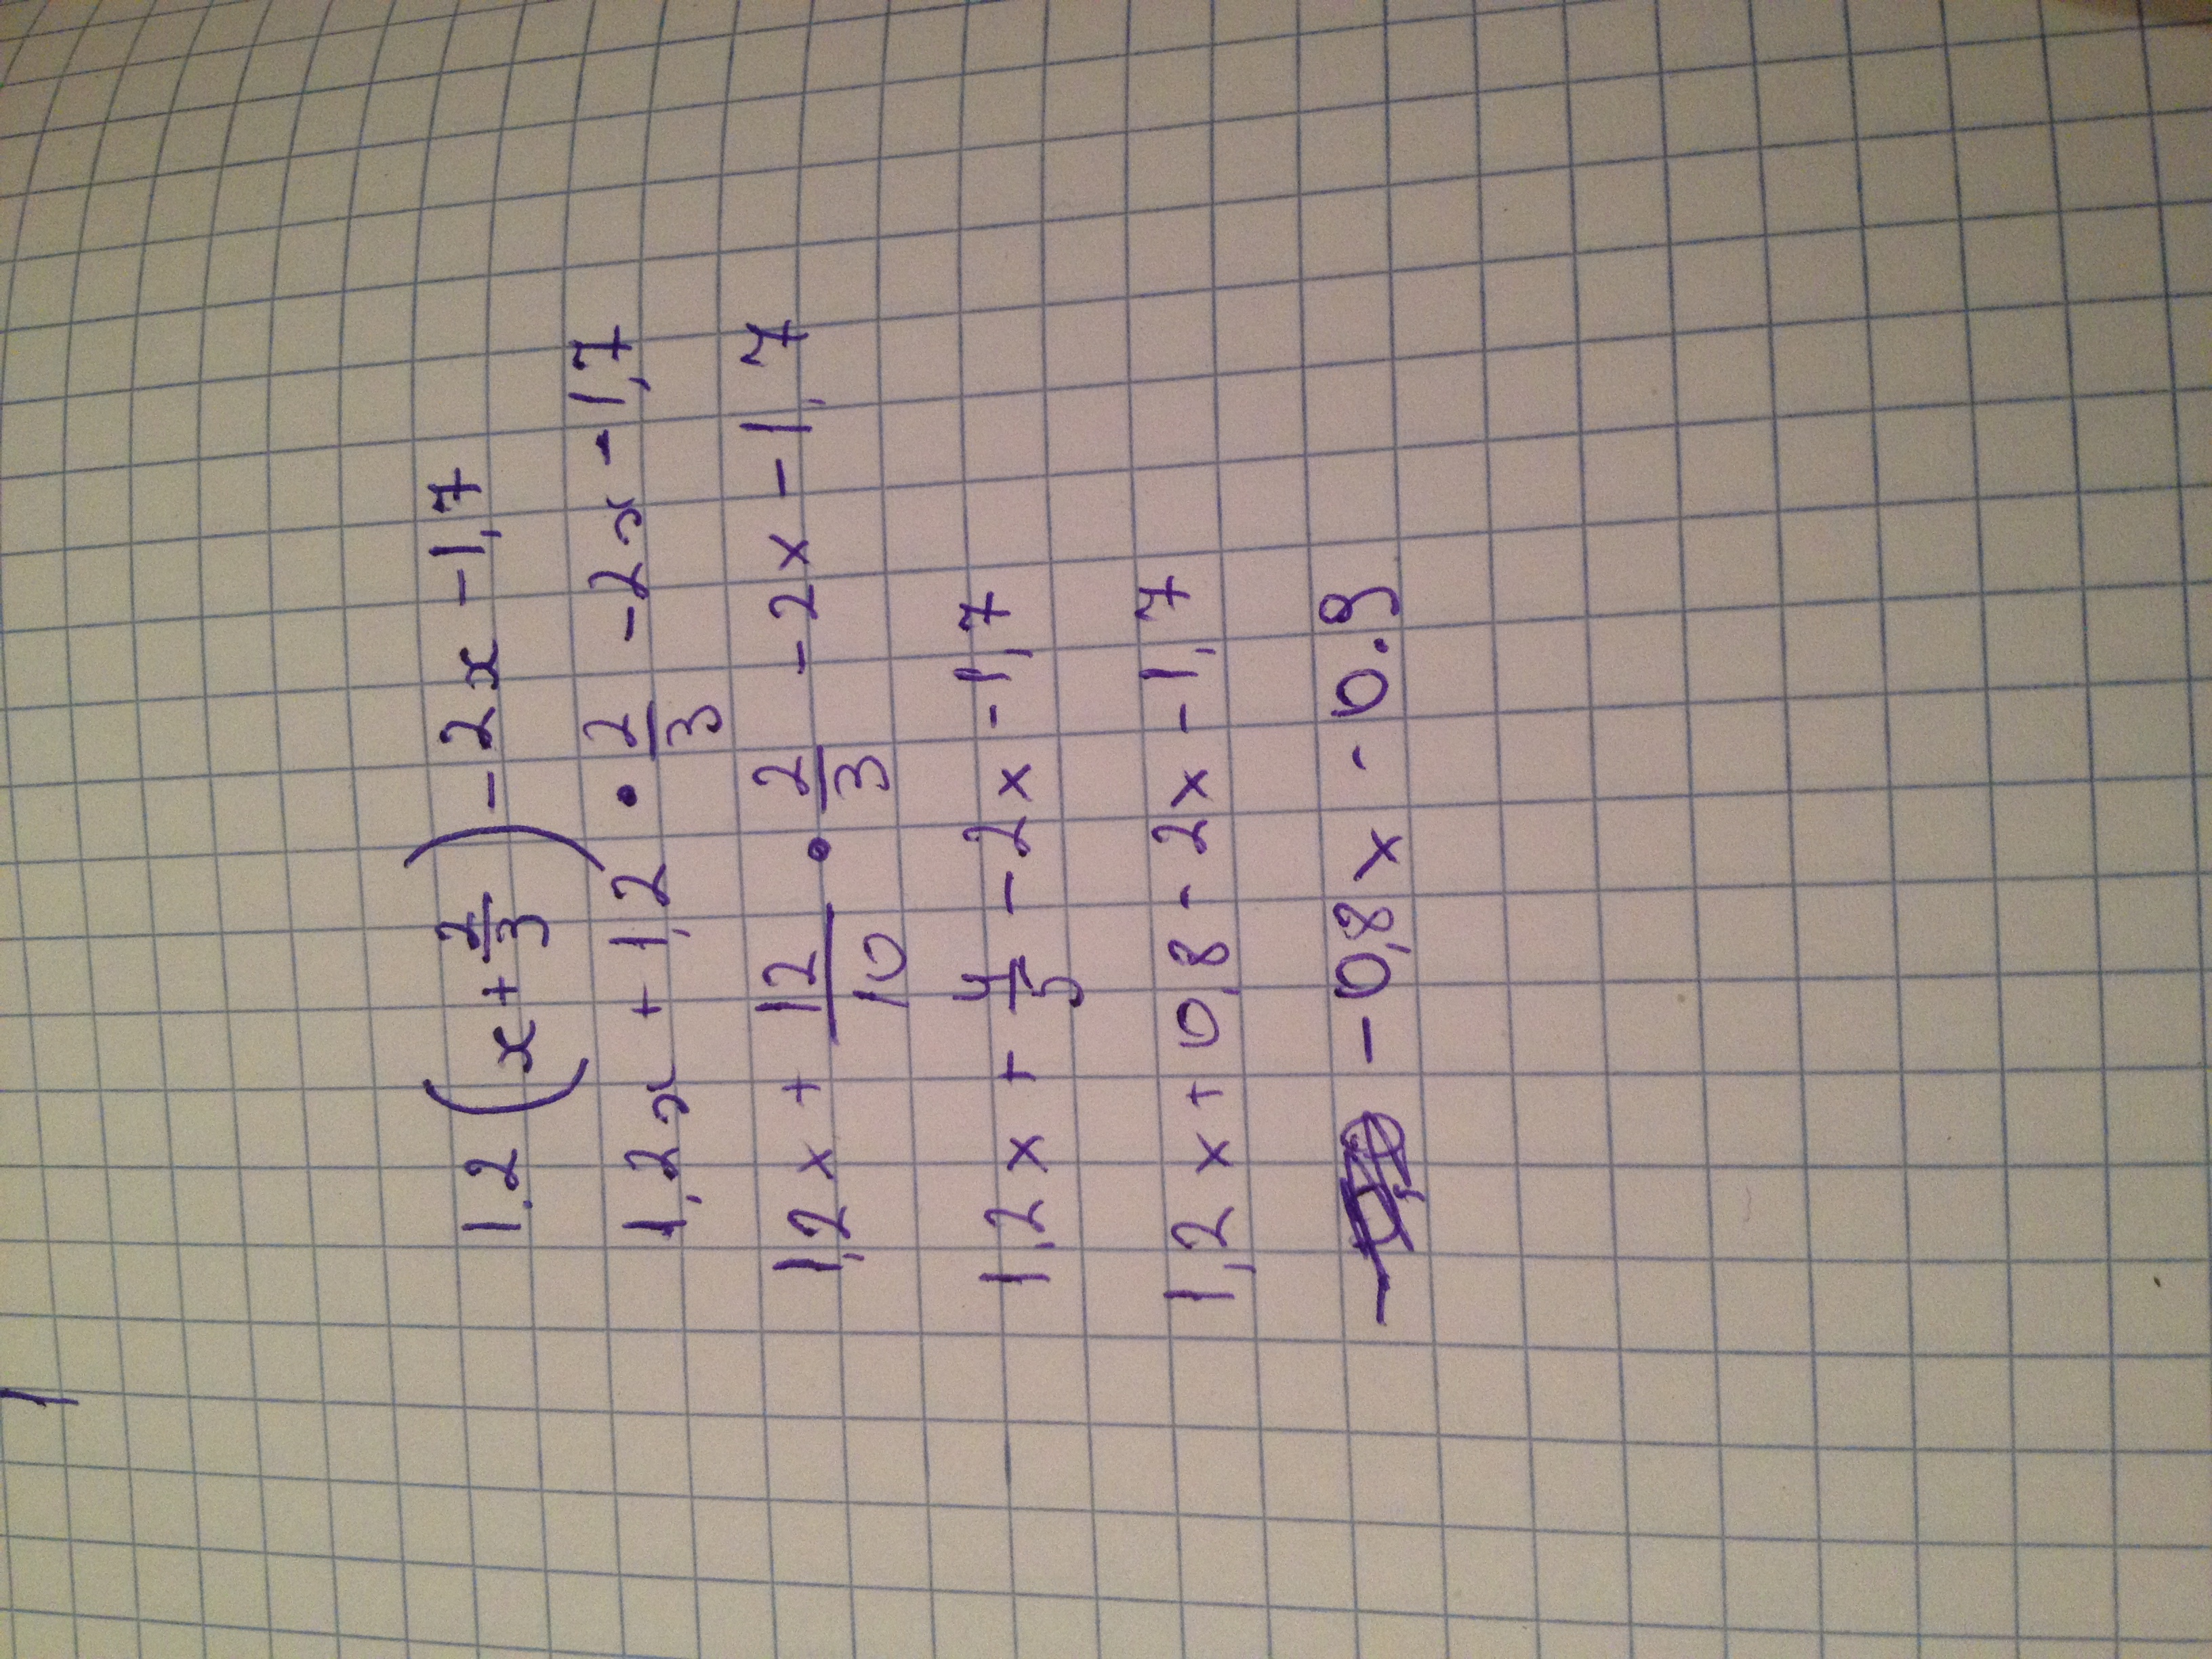 1.2 (x + 2/3) - 2x - 1,7
1,2x + 1,2 • 2/3 - 2x - 1,7
1,2x + 12/10 • 2/3 - 2x - 1,7
1,2x + 4/5 - 2x - 1,7
1,2x + 0,8 - 2x - 1,7
- 0,8x - 0.9